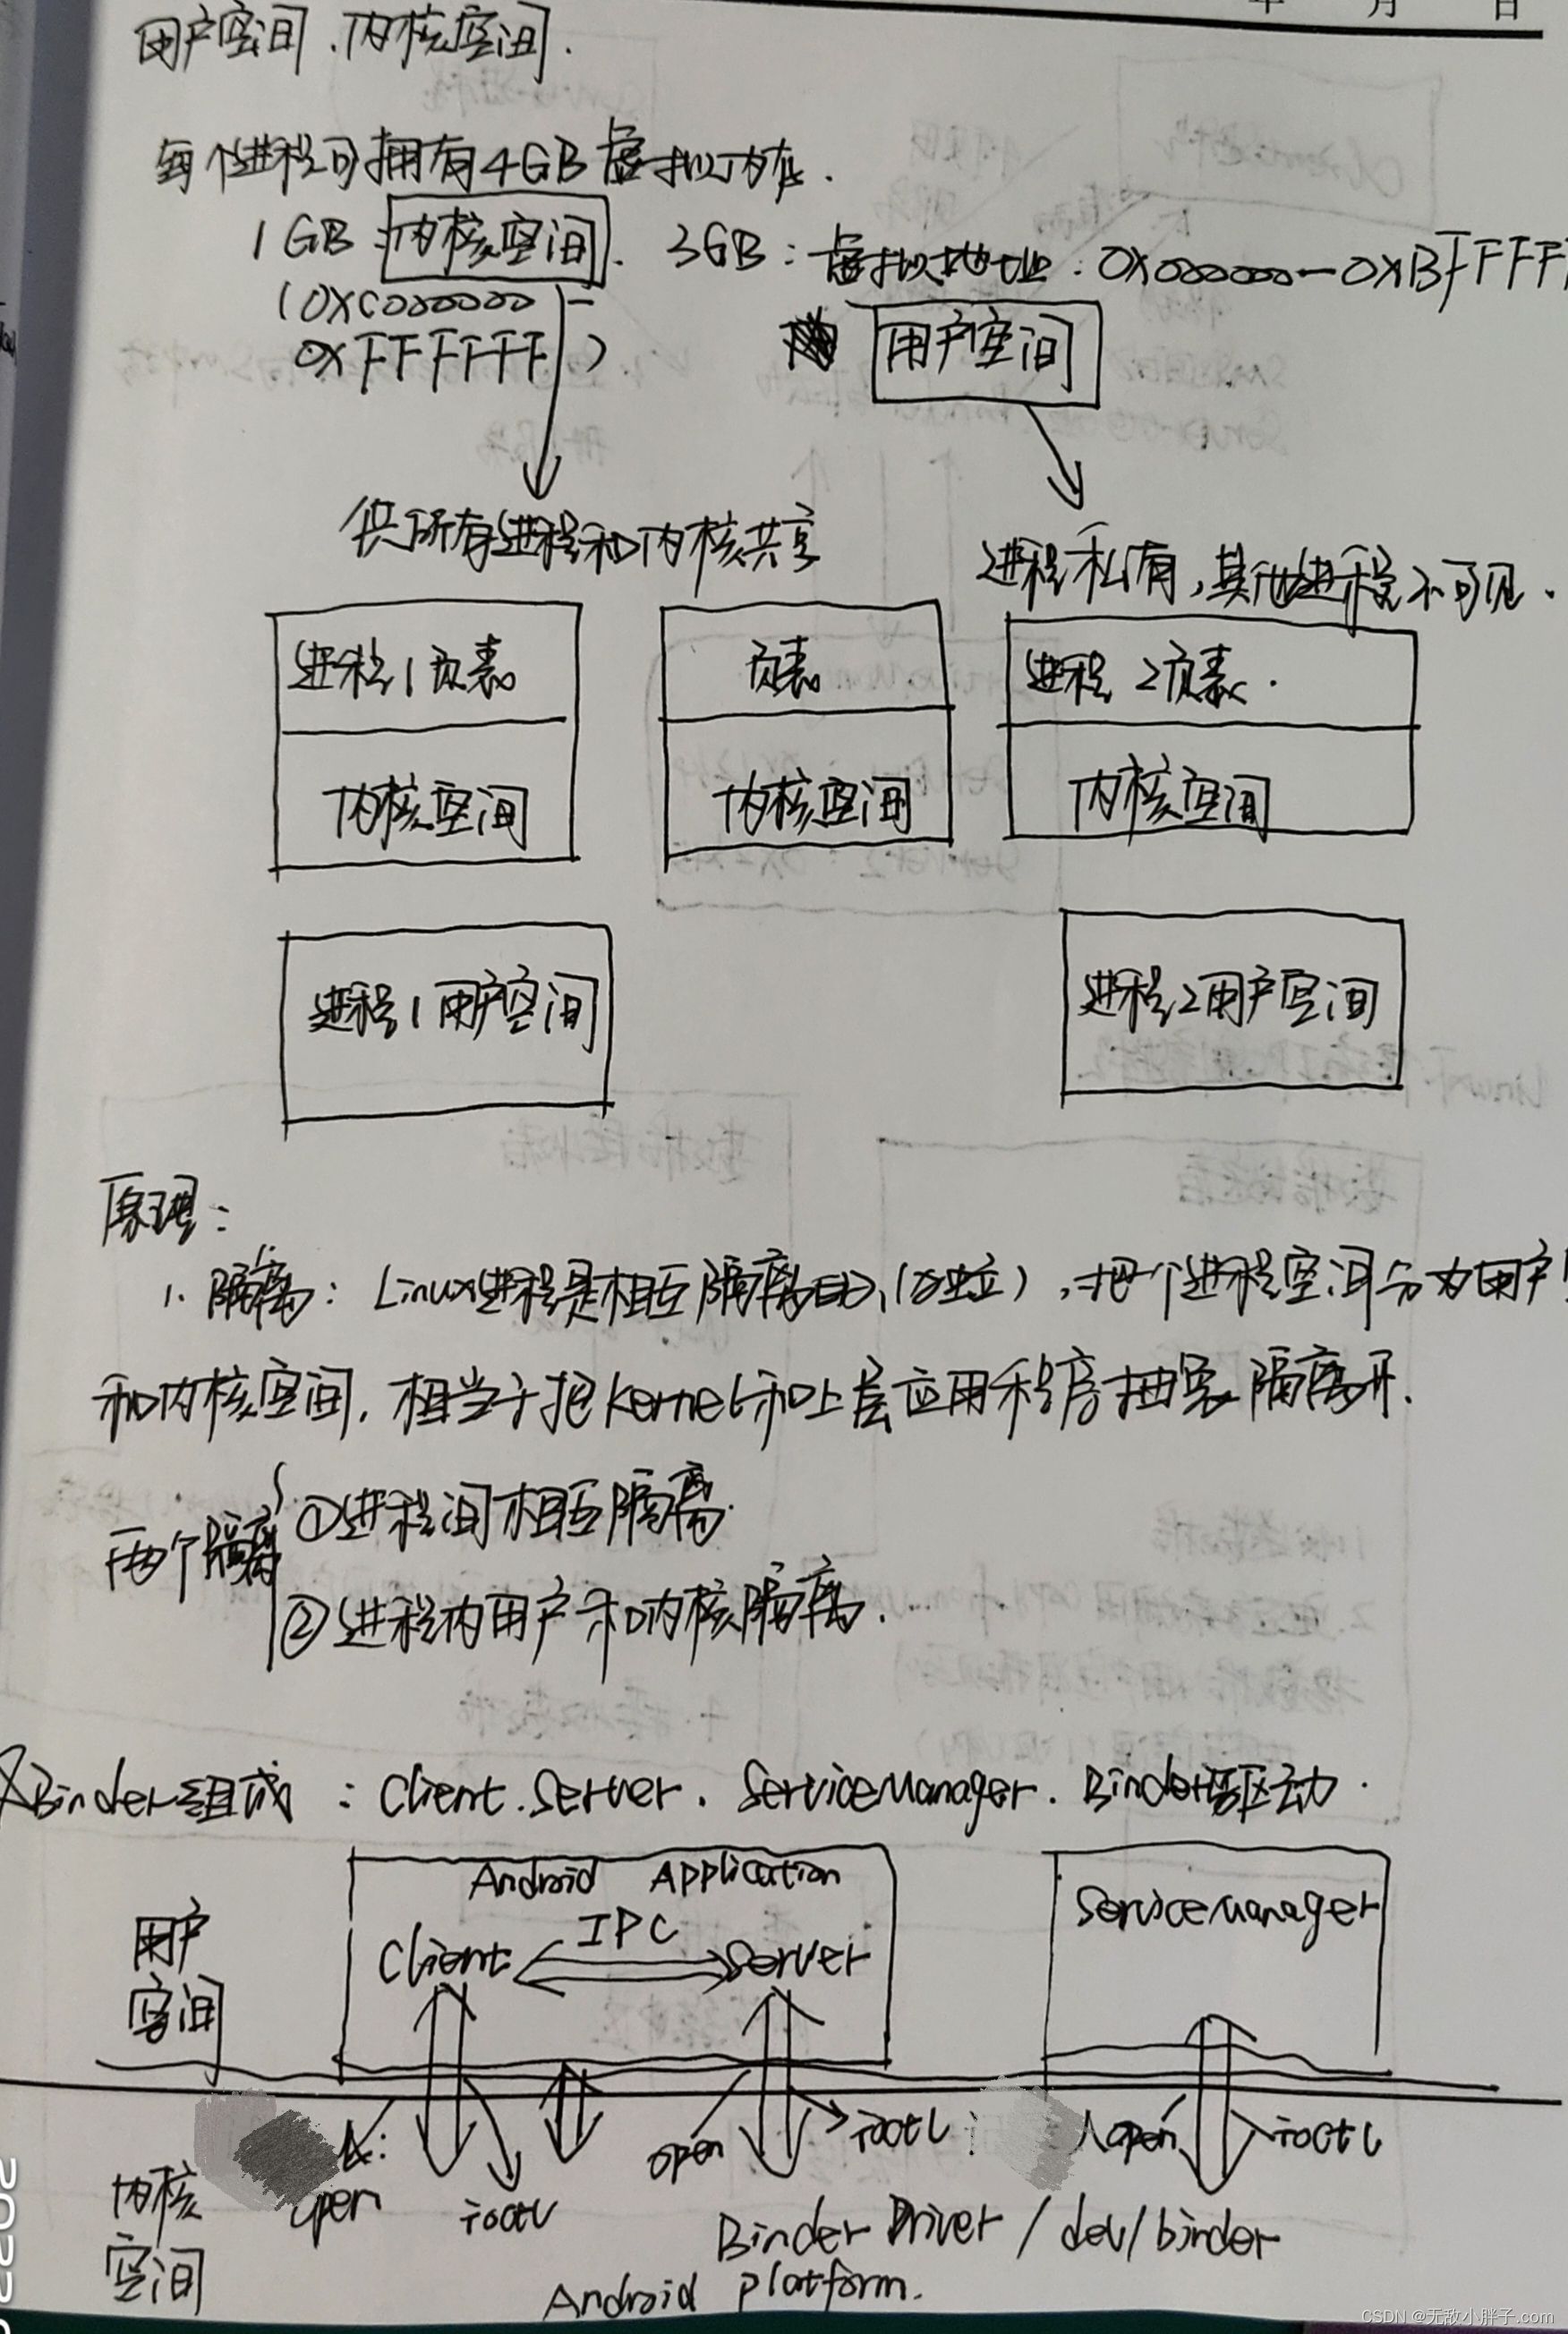 年 月 日
用户空间、内核空间.
每个进程可拥有4GB虚拟内存.
1GB 内核空间. 3GB:虚拟地址:0x000000—0xBFFFF
(0xC000000-
0xFFFFFF)
用户空间
供所有进程和内核共享
进程私有,其他进程不可见.
进程1页表 页表 进程2页表.
内核空间 内核空间 内核空间
进程1用户空间 进程2用户空间
原理:
1. 隔离: Linux进程是相互隔离的、(独立),把个进程空间分为用户
和内核空间,相当于把Kernel和上层应用程序抽象隔离开.
两个隔离
①进程间相互隔离.
②进程内用户和内核隔离.
Binder组成:Client.Server.ServiceManager.Binder驱动.
Android Application
ServiceManager
用户
空间
Client IPC Server
open ioctl open ioctl open ioctl
内核
空间
Binder Driver /dev/binder
Android platform.
CSDN @无敌小胖子.com